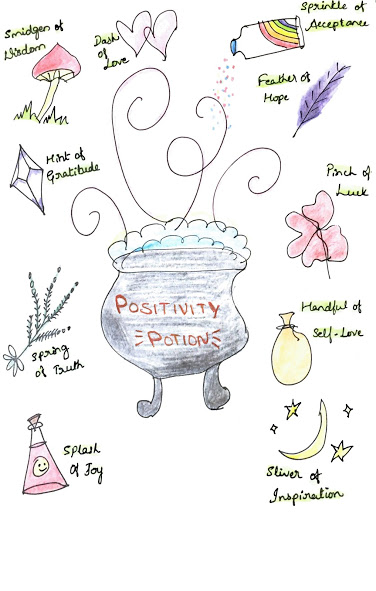 Smidgen of
Wisdom
Dash
of
Love
Sprinkle of
Acceptance
Feather of
Hope
Hint of
Gratitude
Pinch of
Luck
POSITIVITY
POTION
Handful of
Self-Love
Spring
of Truth
Splash
of Joy
Sliver of
Inspiration